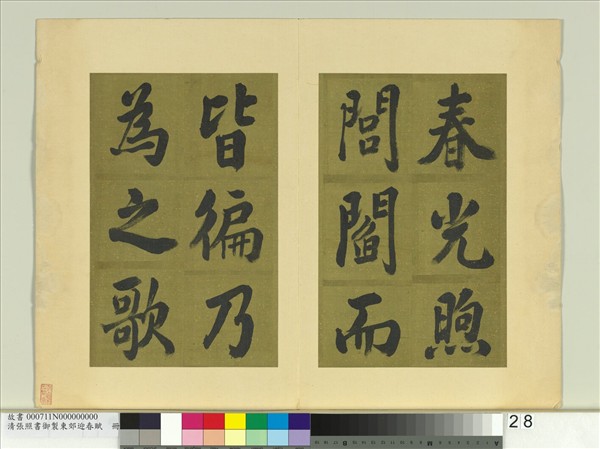 春光煦
閭閻而
皆徧乃
為之歌
故書 000711N000000000
清張照書御製東郊迎春賦 冊
28